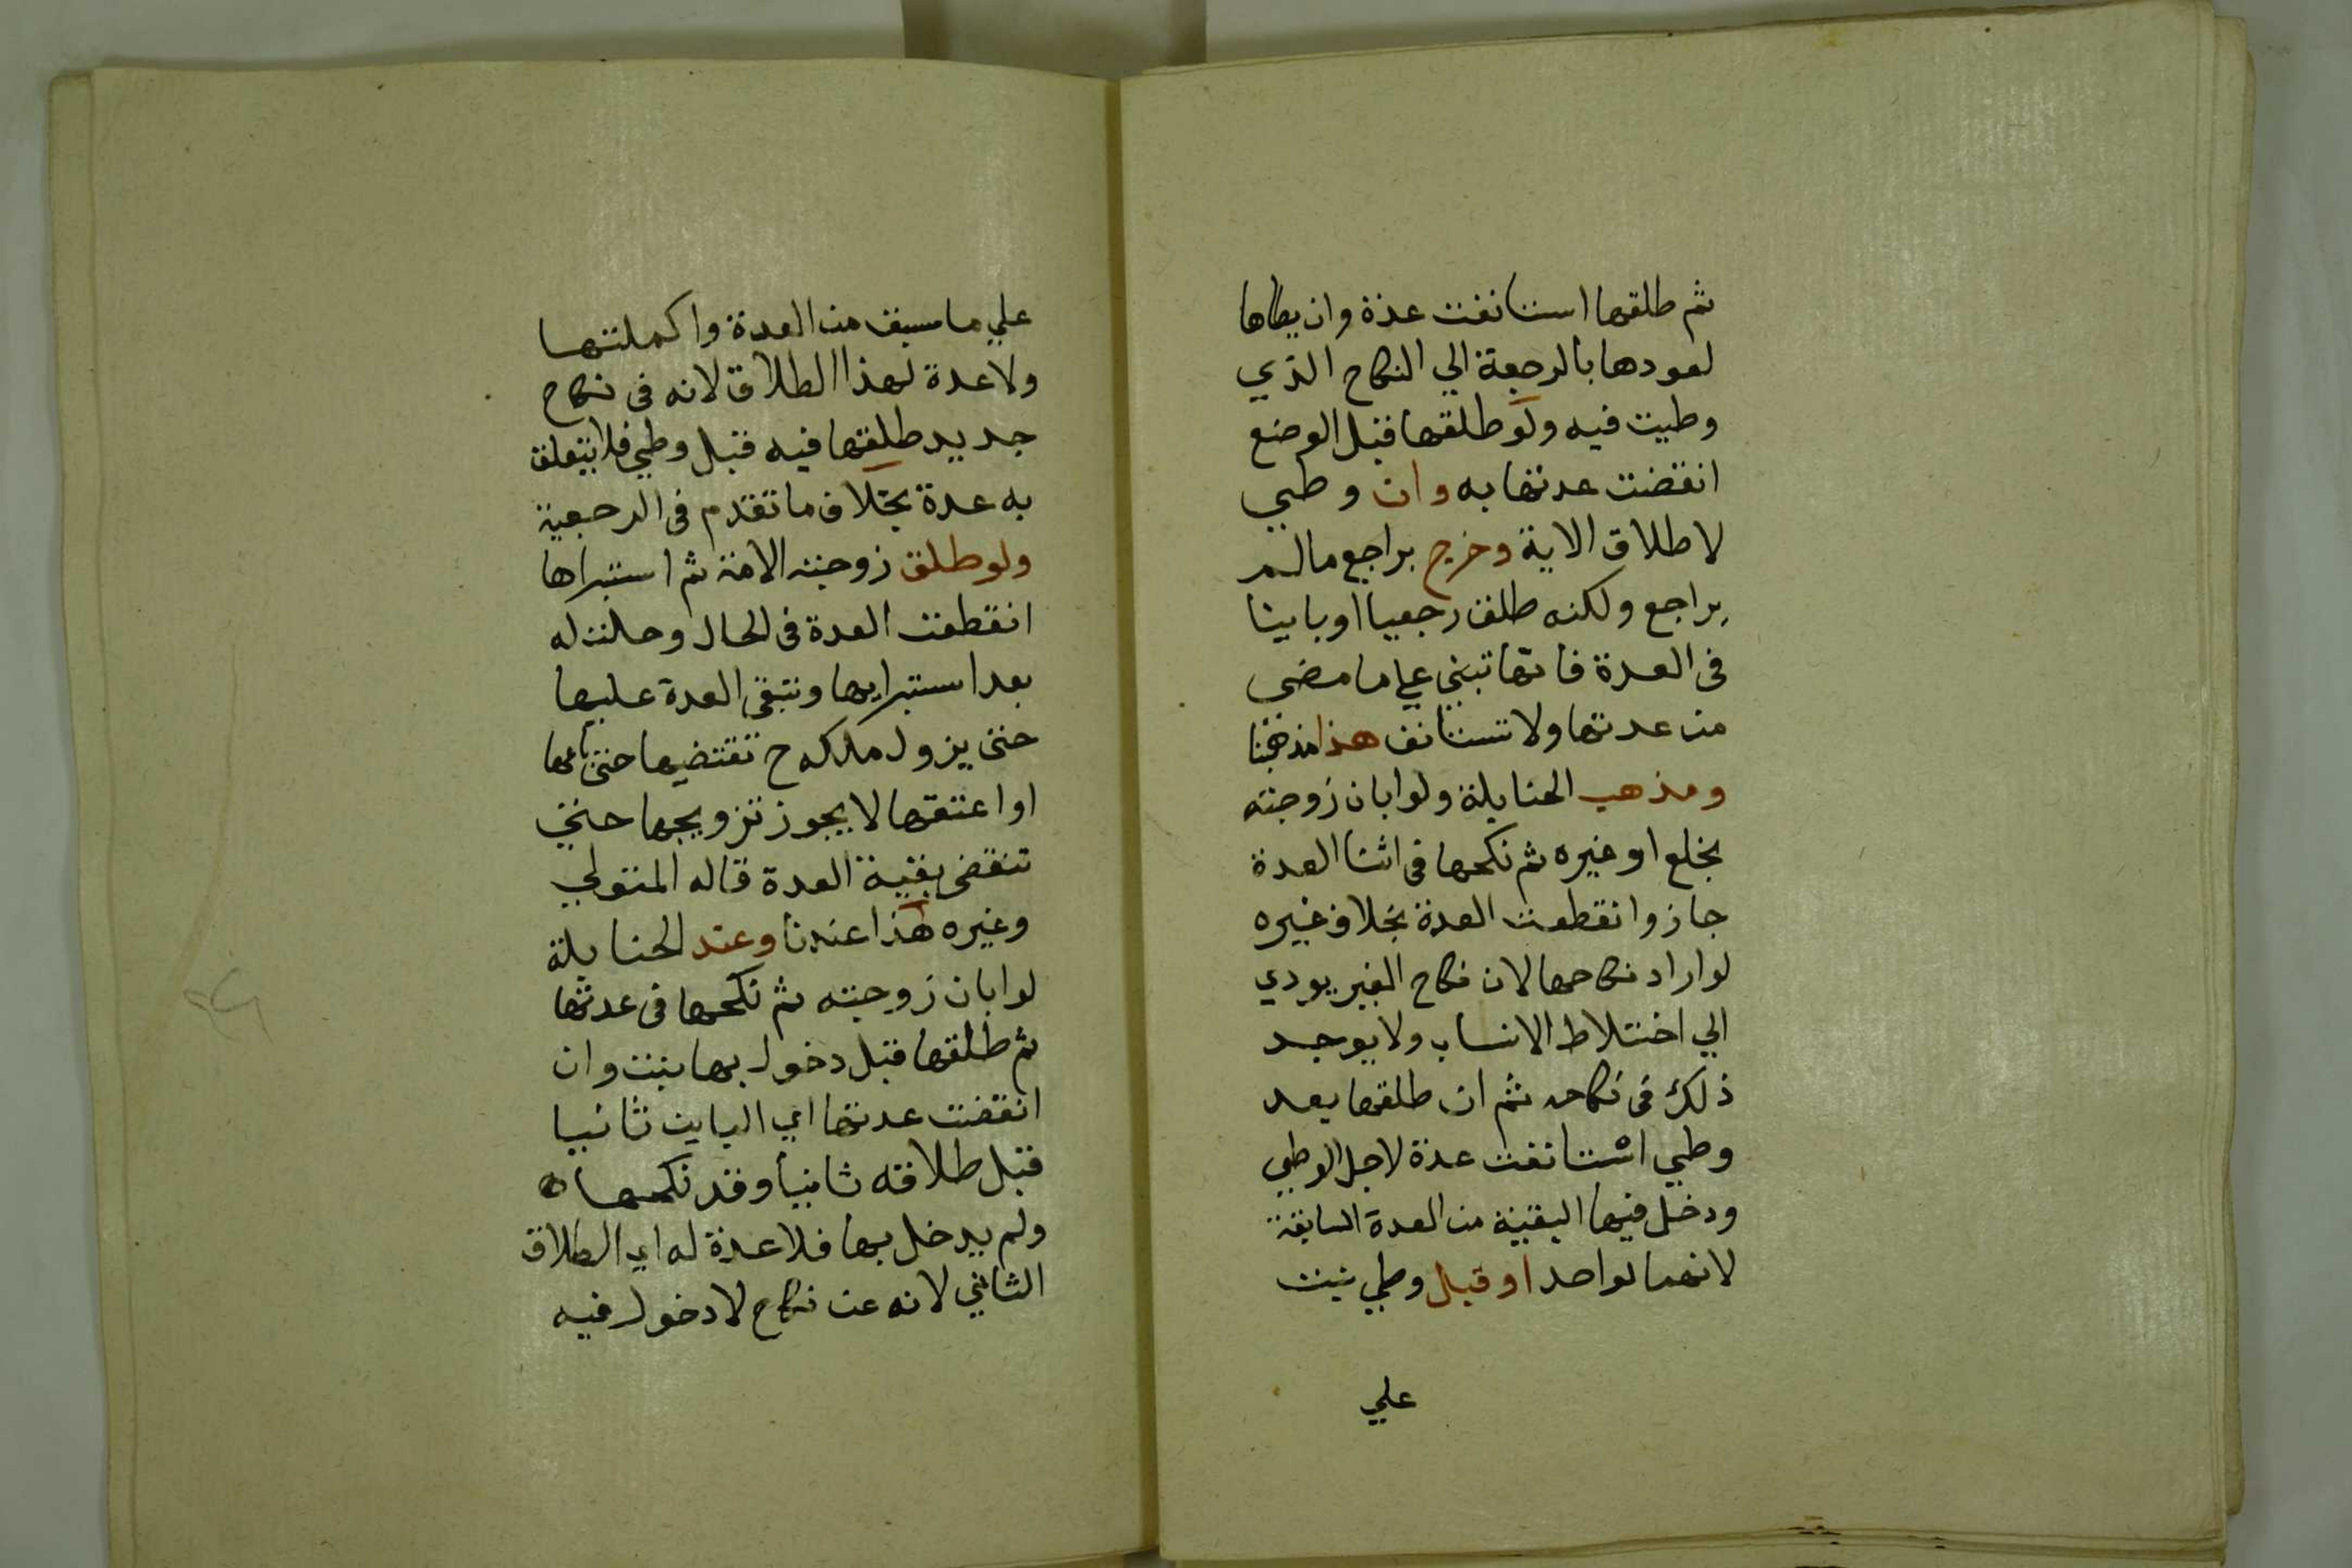 ثم طلقها استانفت عدة وان يطاها
لعودها بالرجعة الي النكاح الذي
وطيت فيه ولو طلقها قبل الوضع
انقضت عدتها به وان وطي
لاطلاق الاية وخرج براجع مالم
يراجع ولكنه طلق رجعيا او باينا
في العدة فانها تبني علي ما مضي
من عدتها ولا تستانف هذا مذهبنا
ومذهب الحنابلة ولو ابان زوجته
بخلع او غيره ثم نكحها في اثنا العدة
جاز وانقطعت العدة بخلاف غيره
لو اراد نكاحها لان نكاح الغير يودي
الي اختلاط الانساب ولا يوجد
ذلك في نكاحه ثم ان طلقها بعد
وطي استانفت عدة لاجل الوطي
ودخل فيها البقية من العدة السابقة
لانهما لواحد او قبل وطي بنت
علي
علي ما سبق من العدة واكملتها
ولا عدة لهذا الطلاق لانه في نكاح
جديد طلقها فيه قبل وطي فلا يتعلق
به عدة بخلاف ما تقدم في الرجعية
ولو طلق زوجته الامة ثم استبراها
انقطعت العدة في الحال وحلت له
بعد استبرايها وتبقي العدة عليها
حتي يزول ملكه ح تقتضيها حتي باعها
او اعتقها لا يجوز تزويجها حتي
تنقضي بقية العدة قاله المتولي
وغيره هذا عندنا وعند الحنابلة
لو ابان زوجته ثم نكحها في عدتها
ثم طلقها قبل دخول بها بنت وان
انقضت عدتها اي الباين ثانيا
قبل طلاقه ثانيا وقد نكحها
ولم يدخل بها فلا عدة له اي الطلاق
الثاني لانه عن نكاح لا دخول فيه